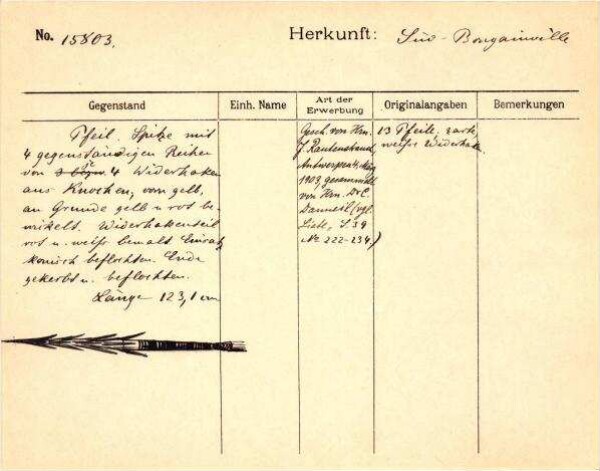 No. 15803.
Herkunft: Süd-Bougainville
Gegenstand
Einh. Name
Art der Erwerbung
Originalangaben
Bemerkungen
Pfeil. Spitze mit
4 gegenständigen Reihen
von 4 Widerhaken
aus Knochen, vorn gelb,
am Grunde gelb u rot be-
wickelt. Widerhakenteil
rot u. weiß bemalt
konisch beflochten. Ende
gekerbt u. beflochten.
Länge 123,1 cm
Gesch. von Hrn.
J. Rautenstrauch,
Antwerpen, März
1903, gesammelt
von Hrn. Dr C.
Danneil (vgl.
Liste, S. 39
No 222-234)
13 Pfeile,
weiße Widerhaken